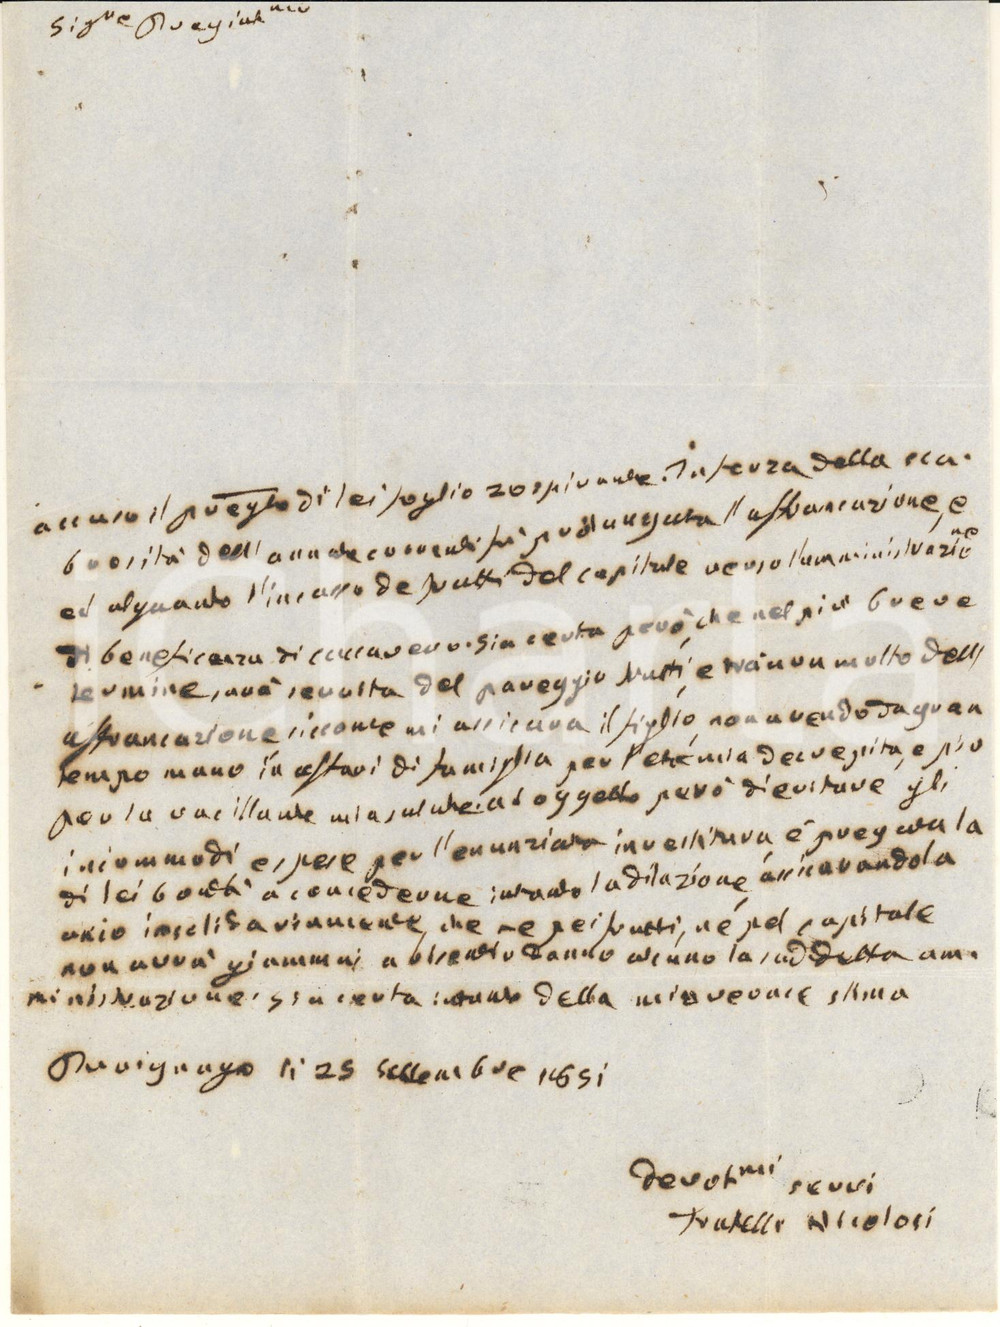 Sig.re Pregiat.mo
accuso il pregto di lei foglio 20 spirante. In forza della sca-
brosità dell'annate correnti fù prolungata l'affrancazione, e
ed alquanto l'incasso de frutti del capitale verso l'amministrazione
di beneficenza di caccavero. Sia certa però, che nel più breve
termine, avrà sevolta del pareggio frutti, e trà non molto dell'
affrancazione siccome mi assicura il figlio, non avendo da gran
tempo mano in affari di famiglia per l'età mia decrepita, e più
per la vacillante mia salute. ad oggetto però di evitare gli
incommodi e spese per l'enunziata investitura è pregata la
di lei bontà a concederne intanto la dilazione, assicurandola
anco insolidariamente, che ne pei frutti, né pel capitale
non avrà giammai a risentir danno alcuno la suddetta am-
ministrazione. Sia certa intanto della mia verace stima
Ravignago li 25 settembre 1851
Devotmi servi
Fratelli Nicolosi
iCharta